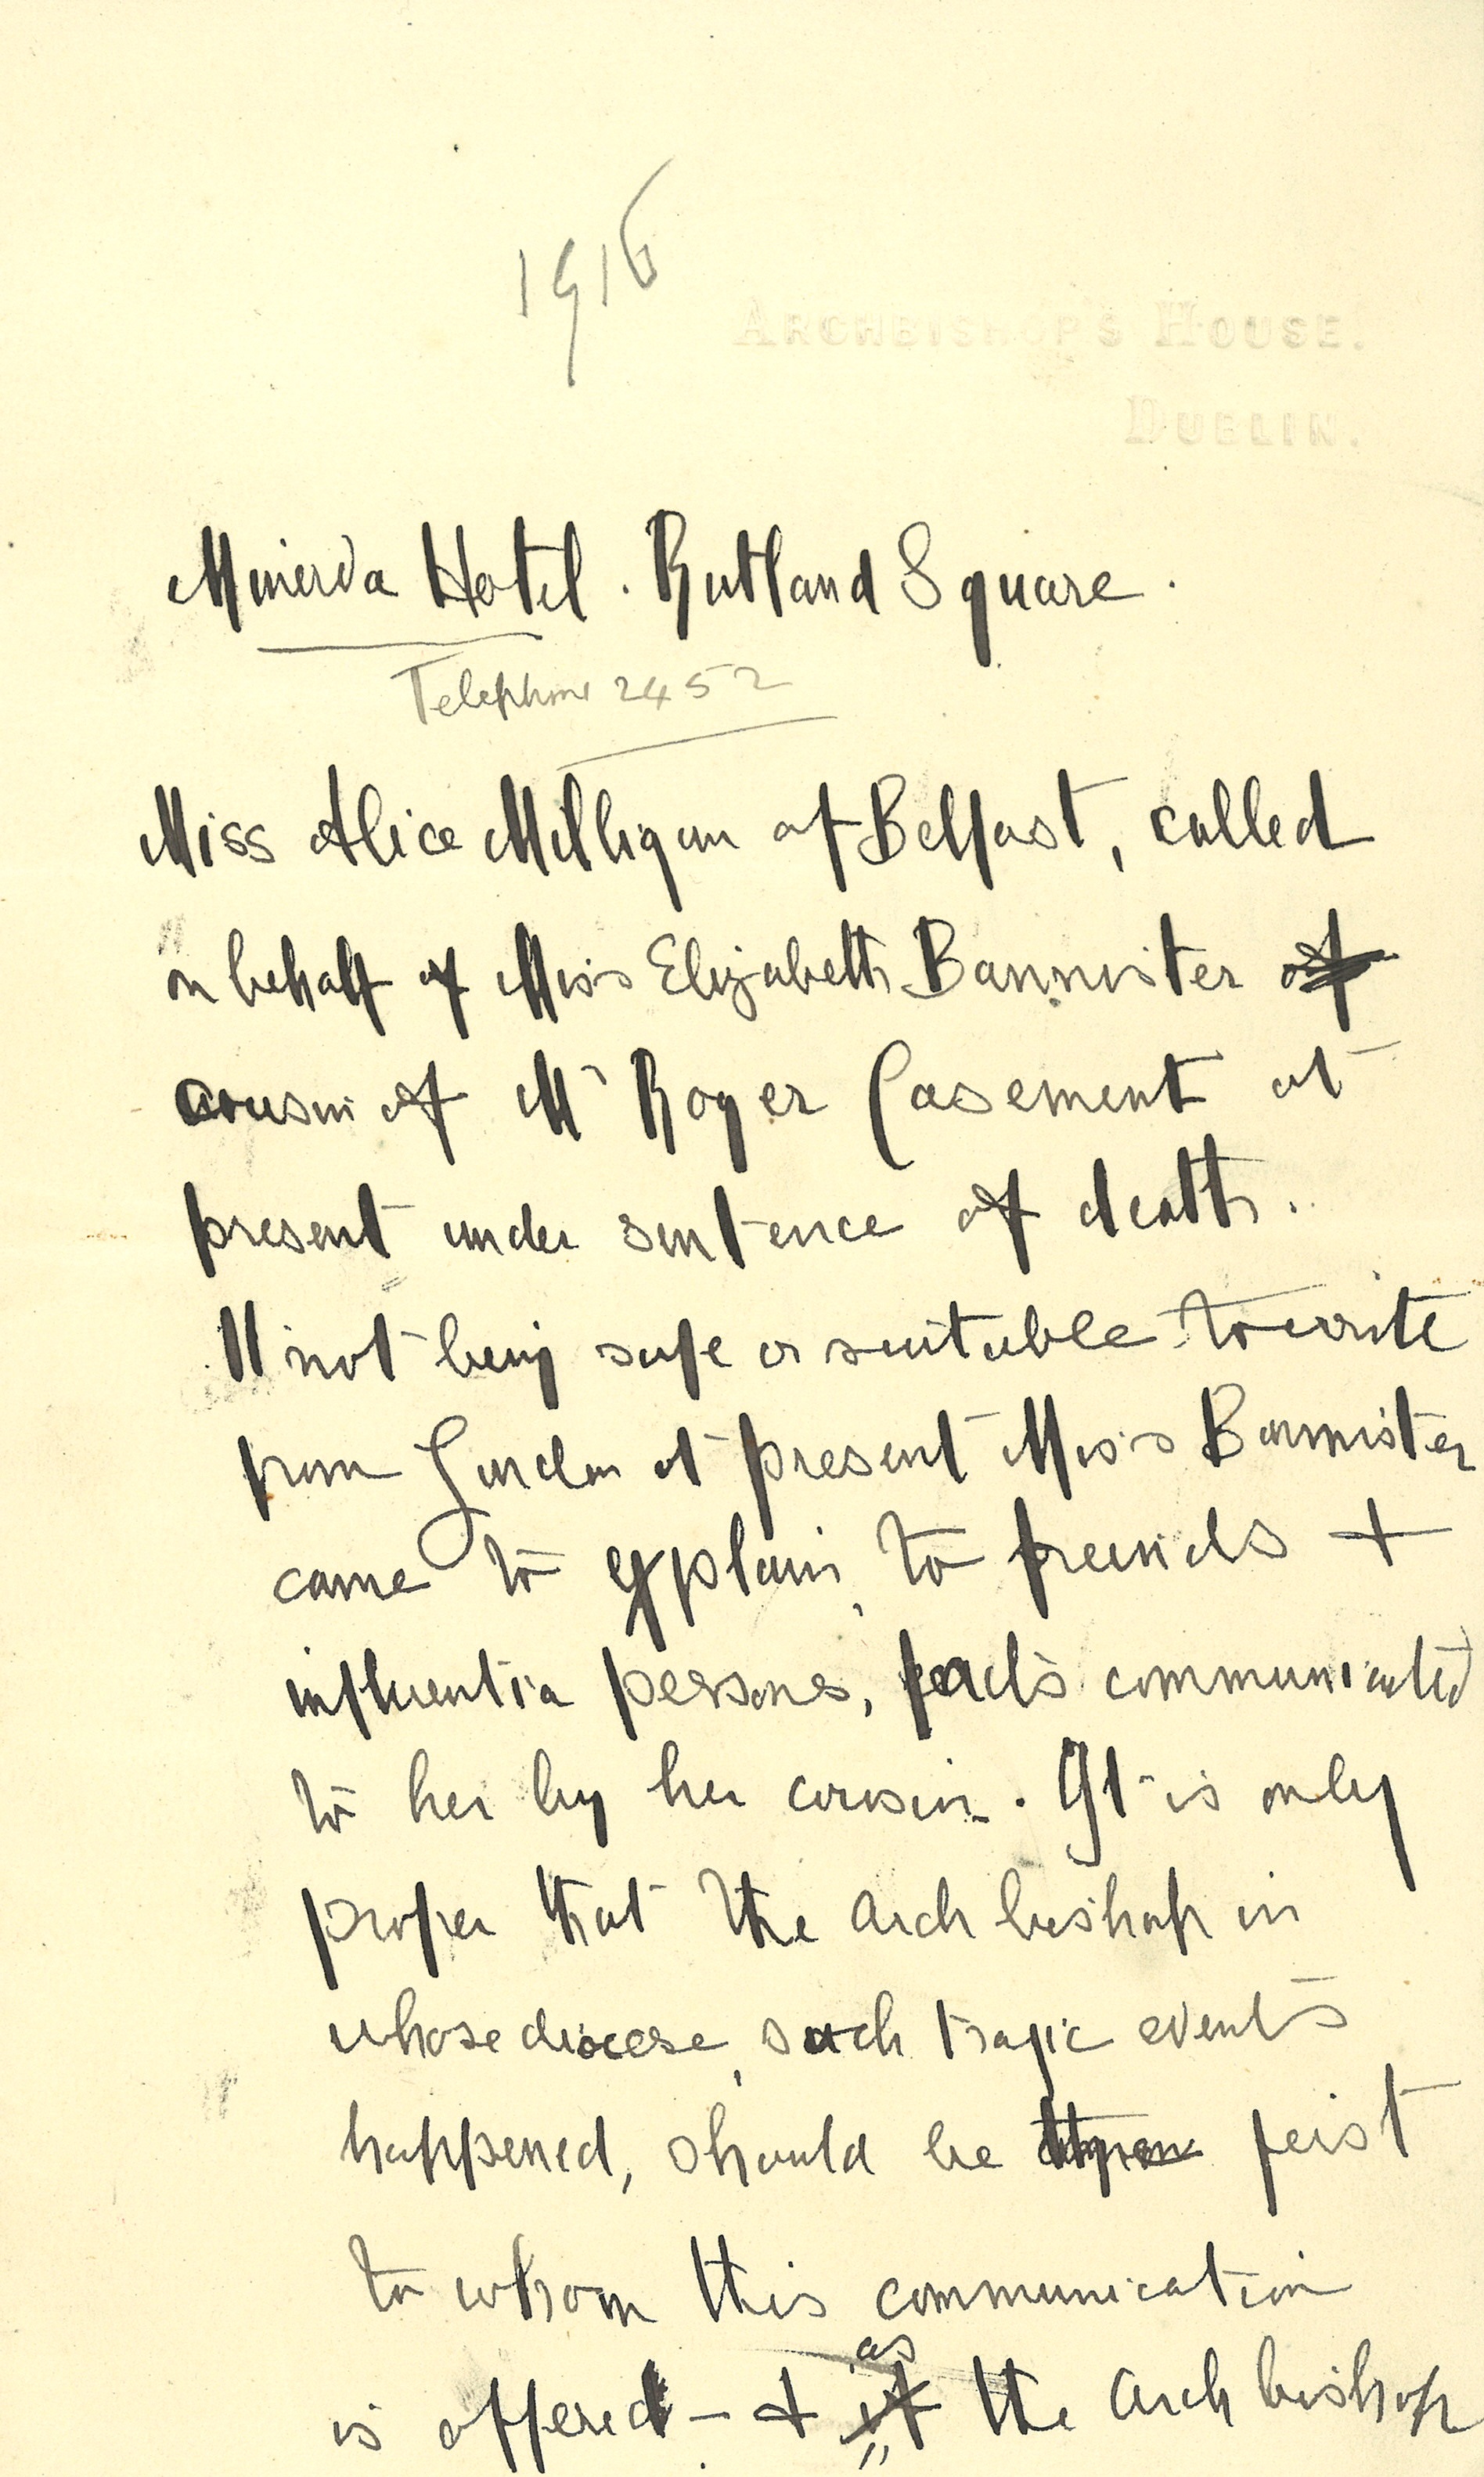 1916
ARCHBISHOP'S HOUSE.
DUBLIN.
Minerva Hotel. Rutland Square.
Telephone 2452
Miss Alice Milligan of Belfast, called
on behalf of Miss Elizabeth Bannister of
cousin of Mr Roger Casement at
present under sentence of death.
It not being safe or suitable to write
from London at present Miss Bannister
came to explain, to friends +
influentia persons, facts communicated
to her by her cousin. It is only
proper that the Archbishop in
whose diocese, such tragic events
happened, should be first
to whom this communication
as
is offered - + if the Archbishop